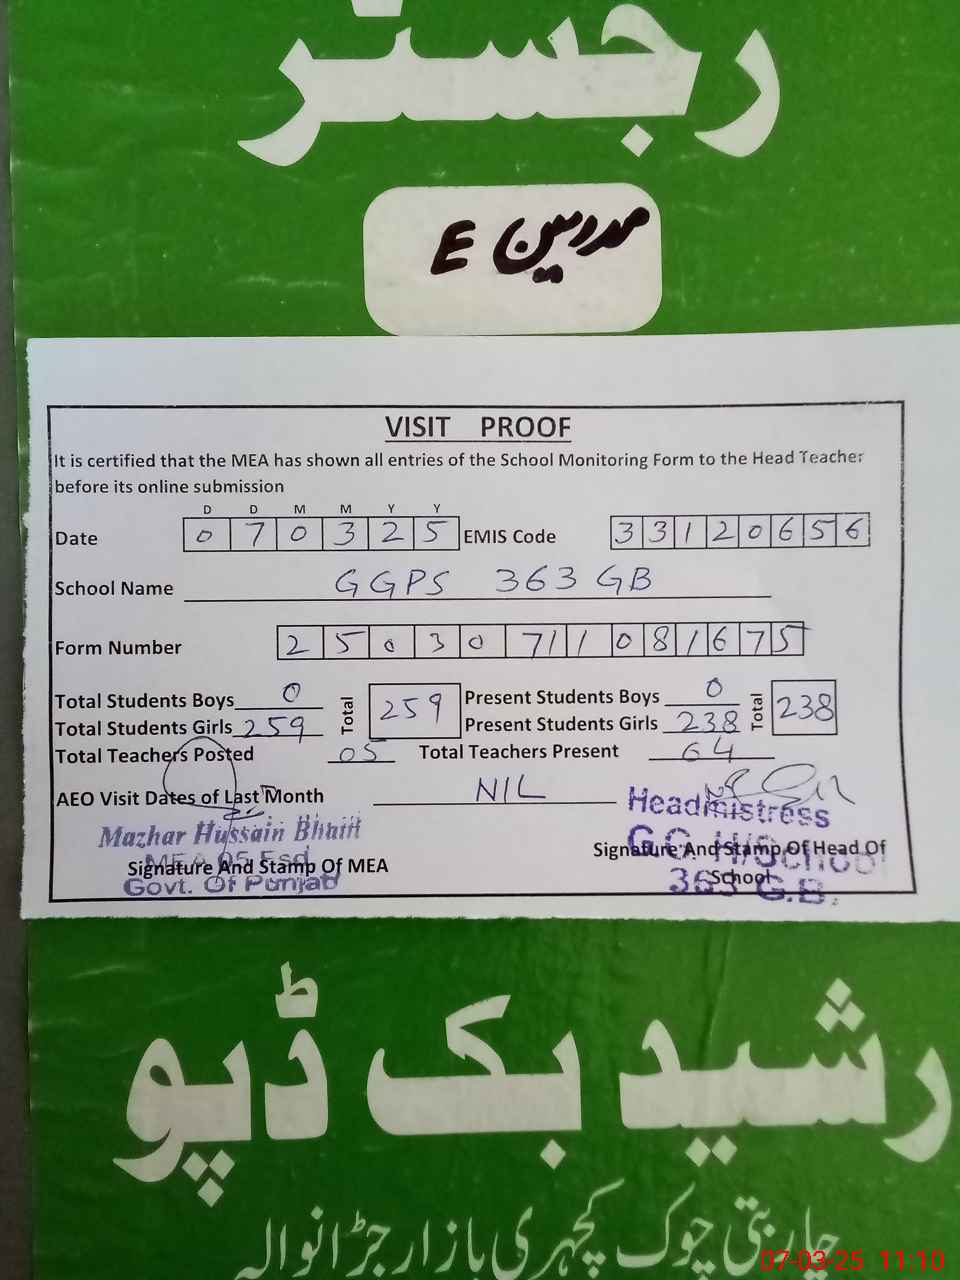 رجسٹر
مدرسین E
VISIT PROOF
It is certified that the MEA has shown all entries of the School Monitoring Form to the Head Teacher
before its online submission
D D M M Y Y
Date 0 7 0 3 2 5 EMIS Code 3 3 1 2 0 6 5 6
School Name GGPS 363 GB
Form Number 2 5 0 3 0 7 1 1 0 8 1 6 7 5
Total Students Boys 0 Total 259 Present Students Boys 0 Total 238
Total Students Girls 259 Present Students Girls 238
Total Teachers Posted 05 Total Teachers Present 64
AEO Visit Dates of Last Month NIL
Mazhar Hussain Bhatti
MEA 05 Fsd
Govt. Of Punjab
Signature And Stamp Of MEA
Headmistress
G.G. H/School
363 G.B.
Signature And Stamp Of Head Of
School
رشید بک ڈپو
چار بتی چوک کچہری بازار جڑانوالہ
07-03-25 11:10